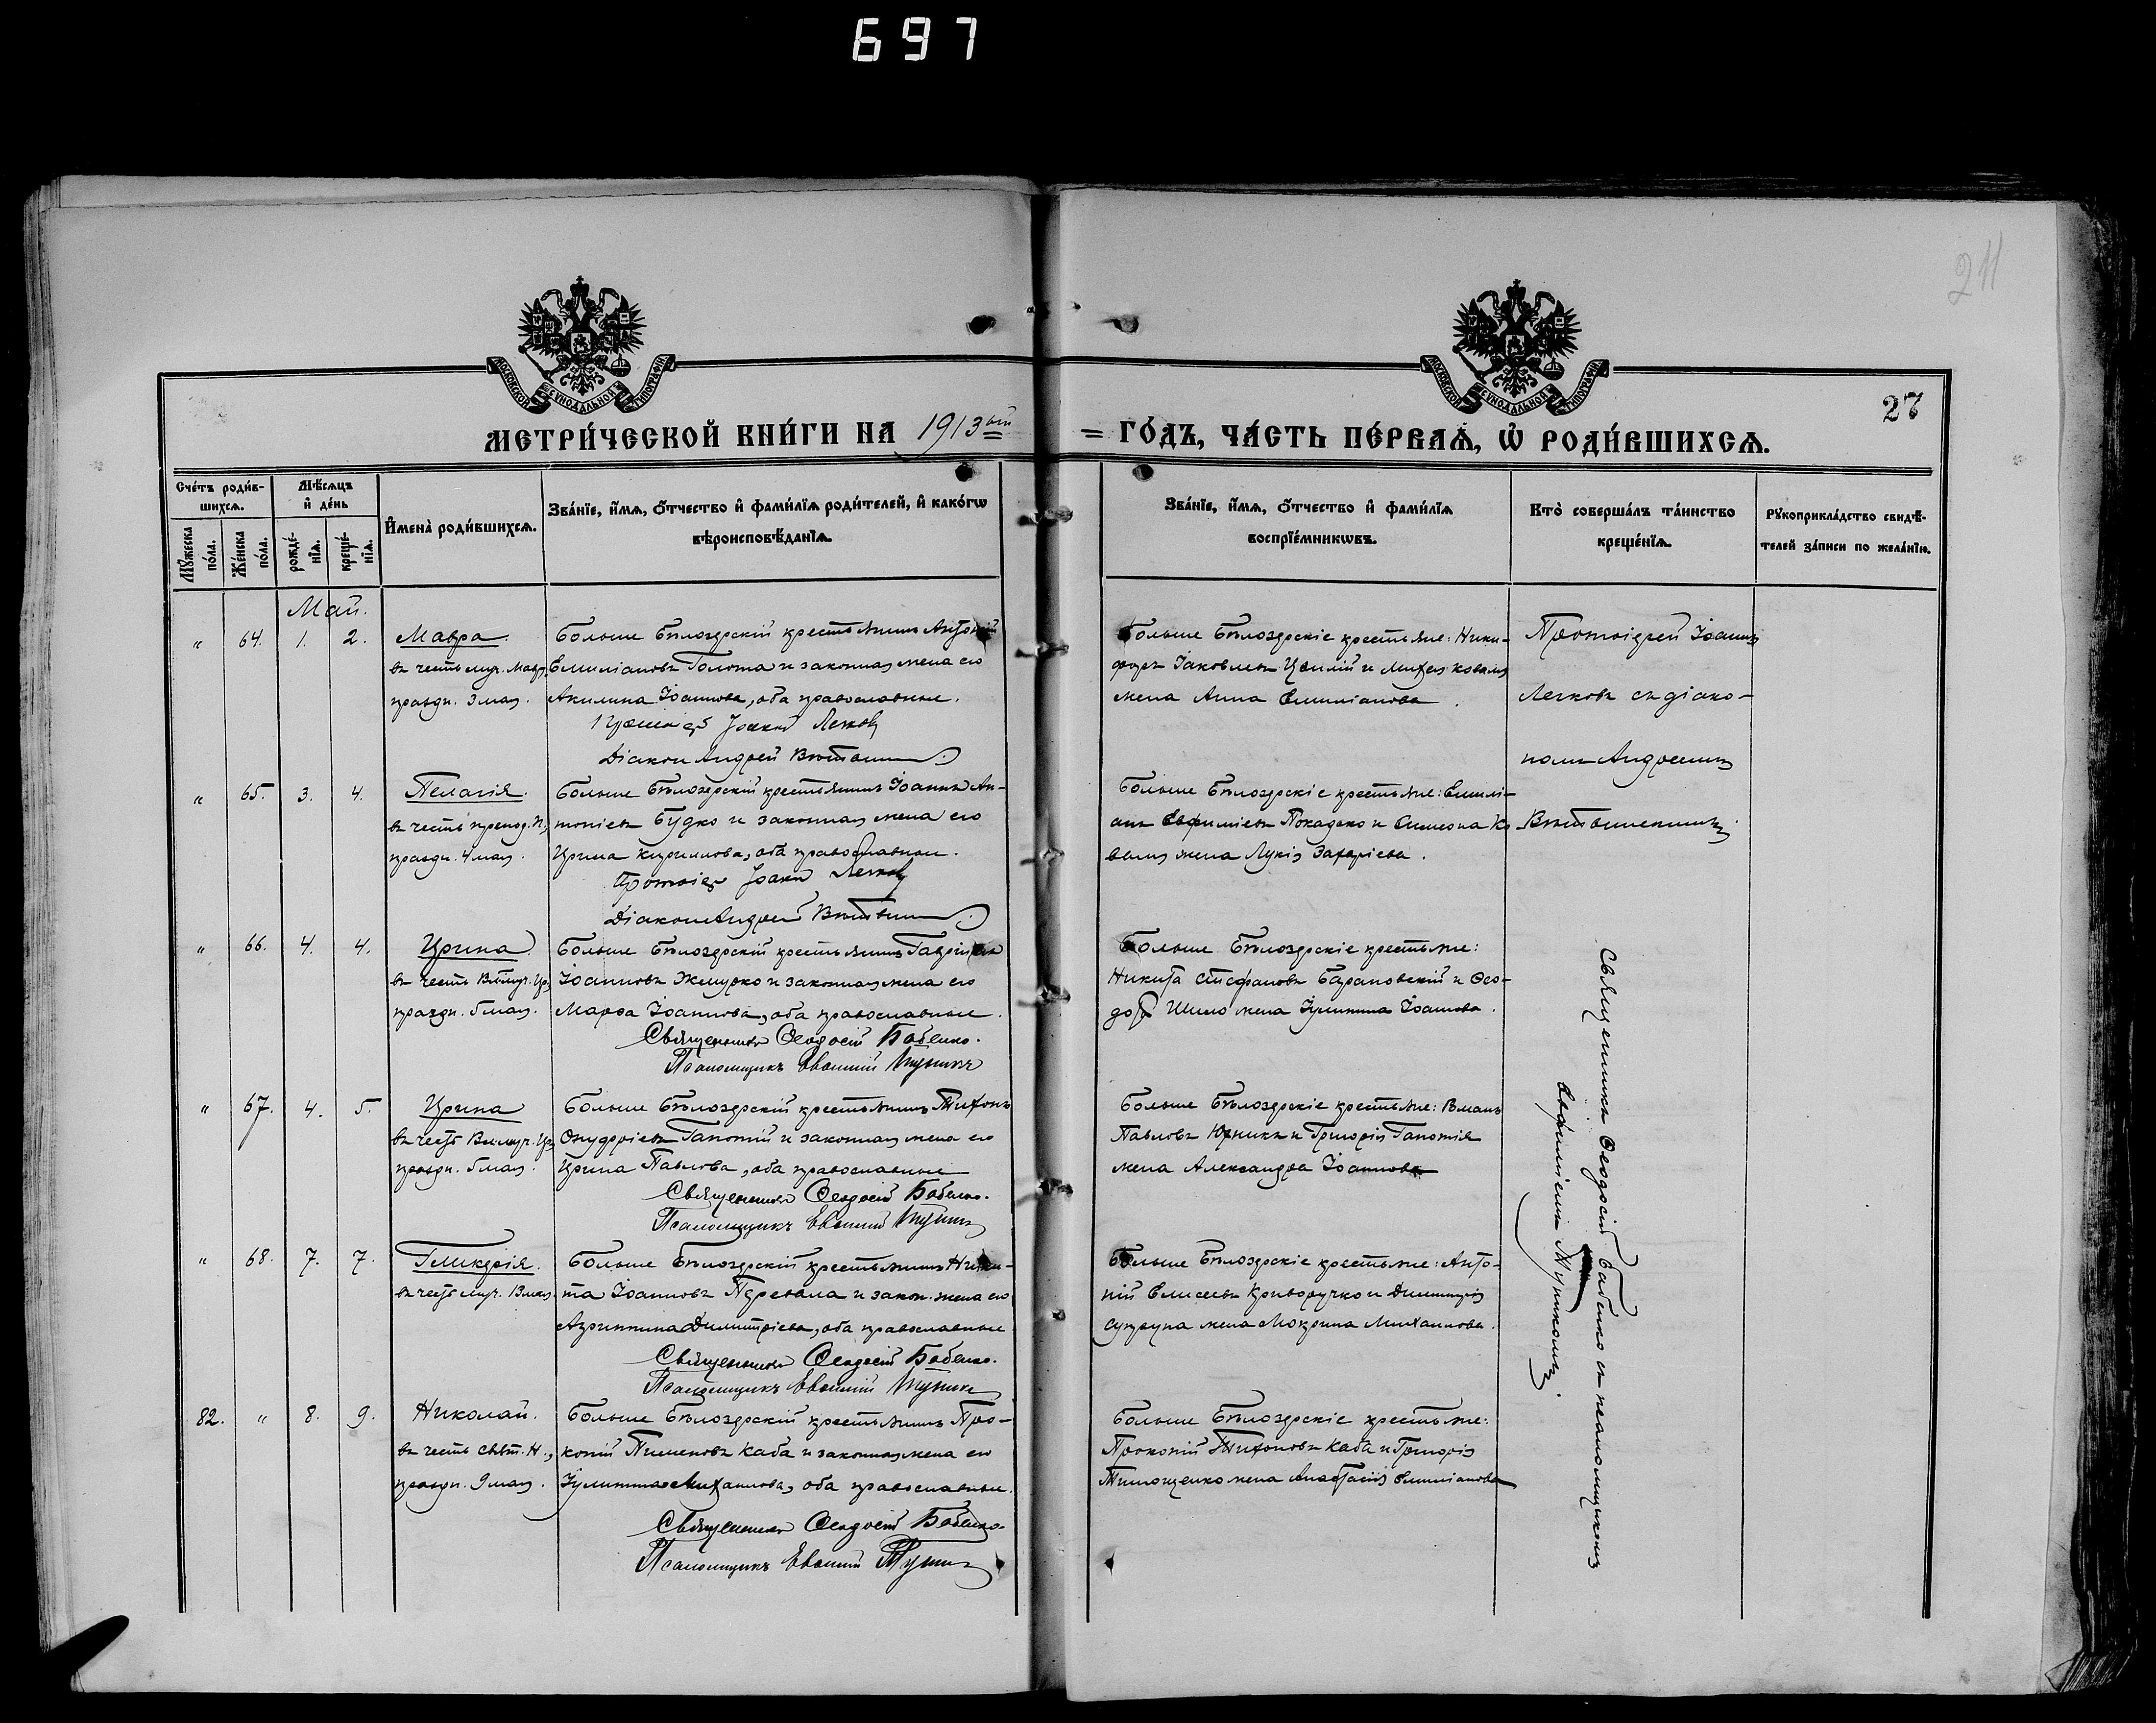 697
211
27
МОСКОВСКОЙ СѴНОДАЛЬНОЙ ТИПОГРАФІИ
МОСКОВСКОЙ СѴНОДАЛЬНОЙ ТИПОГРАФІИ
МЕТРИ́ЧЕСКОЙ КНИ́ГИ НА 1913 ый = ГО́ДЪ, ЧА́СТЬ ПЕ́РВАѦ, Ѡ҆ РОДИ́ВШИХСѦ.
Сче́тъ роди́в-
шихсѧ.
Мꙋ́жеска по́ла.
Же́нска по́ла.
Мѣ́сѧцъ
и҆ де́нь
рожде́-
нїѧ.
креще́-
нїѧ.
И҆мена̀ роди́вшихсѧ.
Зва́нїе, и҆́мѧ, ѻ҆́тчество и҆ фами́лїѧ роди́телей, и҆ како́гѡ
вѣроисповѣ́данїѧ.
Зва́нїе, и҆́мѧ, ѻ҆́тчество и҆ фами́лїѧ
воспрїе́мникѡвъ.
Кто̀ соверша́лъ та́инство
креще́нїѧ.
Рꙋкоприкла́дство свидѣ́-
телей за́писи по жела́нїю.
Май.
" 64. 1. 2. Мавра.
въ честь муч. Мавр.,
праздн. 3 мая.
Больше Бѣлозерскій крестьянинъ Антоній
Емиліановъ Голота и законная жена его
Акилина Іоаннова, оба православные.
Протоіер Іоанн Легков
Діакон Андрей
Больше Бѣлозерскіе крестьяне: Ники-
форъ Іаковлевъ и Михея Коваля
жена Анна Емиліанова.
Протоіерей Іоаннъ
Легковъ съ діако-
номъ Андреемъ
" 65. 3. 4. Пелагія.
въ честь препод. П.,
праздн. 4 мая.
Больше Бѣлозерскій крестьянинъ Іоаннъ Ан-
тоніевъ Будко и законная жена его
Ирина Кириллова, оба православные.
Протоіер Іоанн Легков
Діакон Андрей
Больше Бѣлозерскіе крестьяне: Емилі-
анъ Евфиміевъ и Симеона Ко-
валя жена Лукія Захаріева.
" 66. 4. 4. Ирина.
въ честь Вмуч. Ир.,
праздн. 5 мая.
Больше Бѣлозерскій крестьянинъ Гавріилъ
Іоанновъ Жмурко и законная жена его
Марѳа Іоаннова, оба православные.
Священникъ Ѳеодосій Бабенко.
Псаломщикъ Евѳимій
Больше Бѣлозерскіе крестьяне:
Никита Стефановъ Барановскій и Ѳео-
дора Шило жена Іулитта Іоаннова.
Священникъ Ѳеодосій Бабенко съ псаломщикомъ
Евфиміемъ
" 67. 4. 5. Ирина
въ честь Вмуч. Ир.,
праздн. 5 мая.
Больше Бѣлозерскій крестьянинъ Тихонъ
Онуфріевъ Гапотій и законная жена его
Ирина Павлова, оба православные
Священникъ Ѳеодосій Бабенко.
Псаломщикъ Евѳимій
Больше Бѣлозерскіе крестьяне:
Павловъ и Григорія Гапотія
жена Александра Іоаннова
" 68. 7. 7. Гликерія.
въ честь муч.
Больше Бѣлозерскій крестьянинъ Ники-
та Іоанновъ Перевала и закон. жена его
Агриппина Димитріева, оба православные
Священникъ Ѳеодосій Бабенко.
Псаломщикъ Евѳимій
Больше Бѣлозерскіе крестьяне: Анто-
ній Елисеевъ Криворучко и Димитрія
Супруна жена Мокрина Михаилова.
82. " 8. 9. Николай.
въ честь свят. Н.,
праздн. 9 мая.
Больше Бѣлозерскій крестьянинъ Про-
копій Пименовъ Каба и законная жена его
Іулитта Михаилова, оба православные.
Священникъ Ѳеодосій Бабенко.
Псаломщикъ Евѳимій
Больше Бѣлозерскіе крестьяне:
Прокопій Тихоновъ Каба и Григорія
Тимощенко жена Анастасія Емиліанова